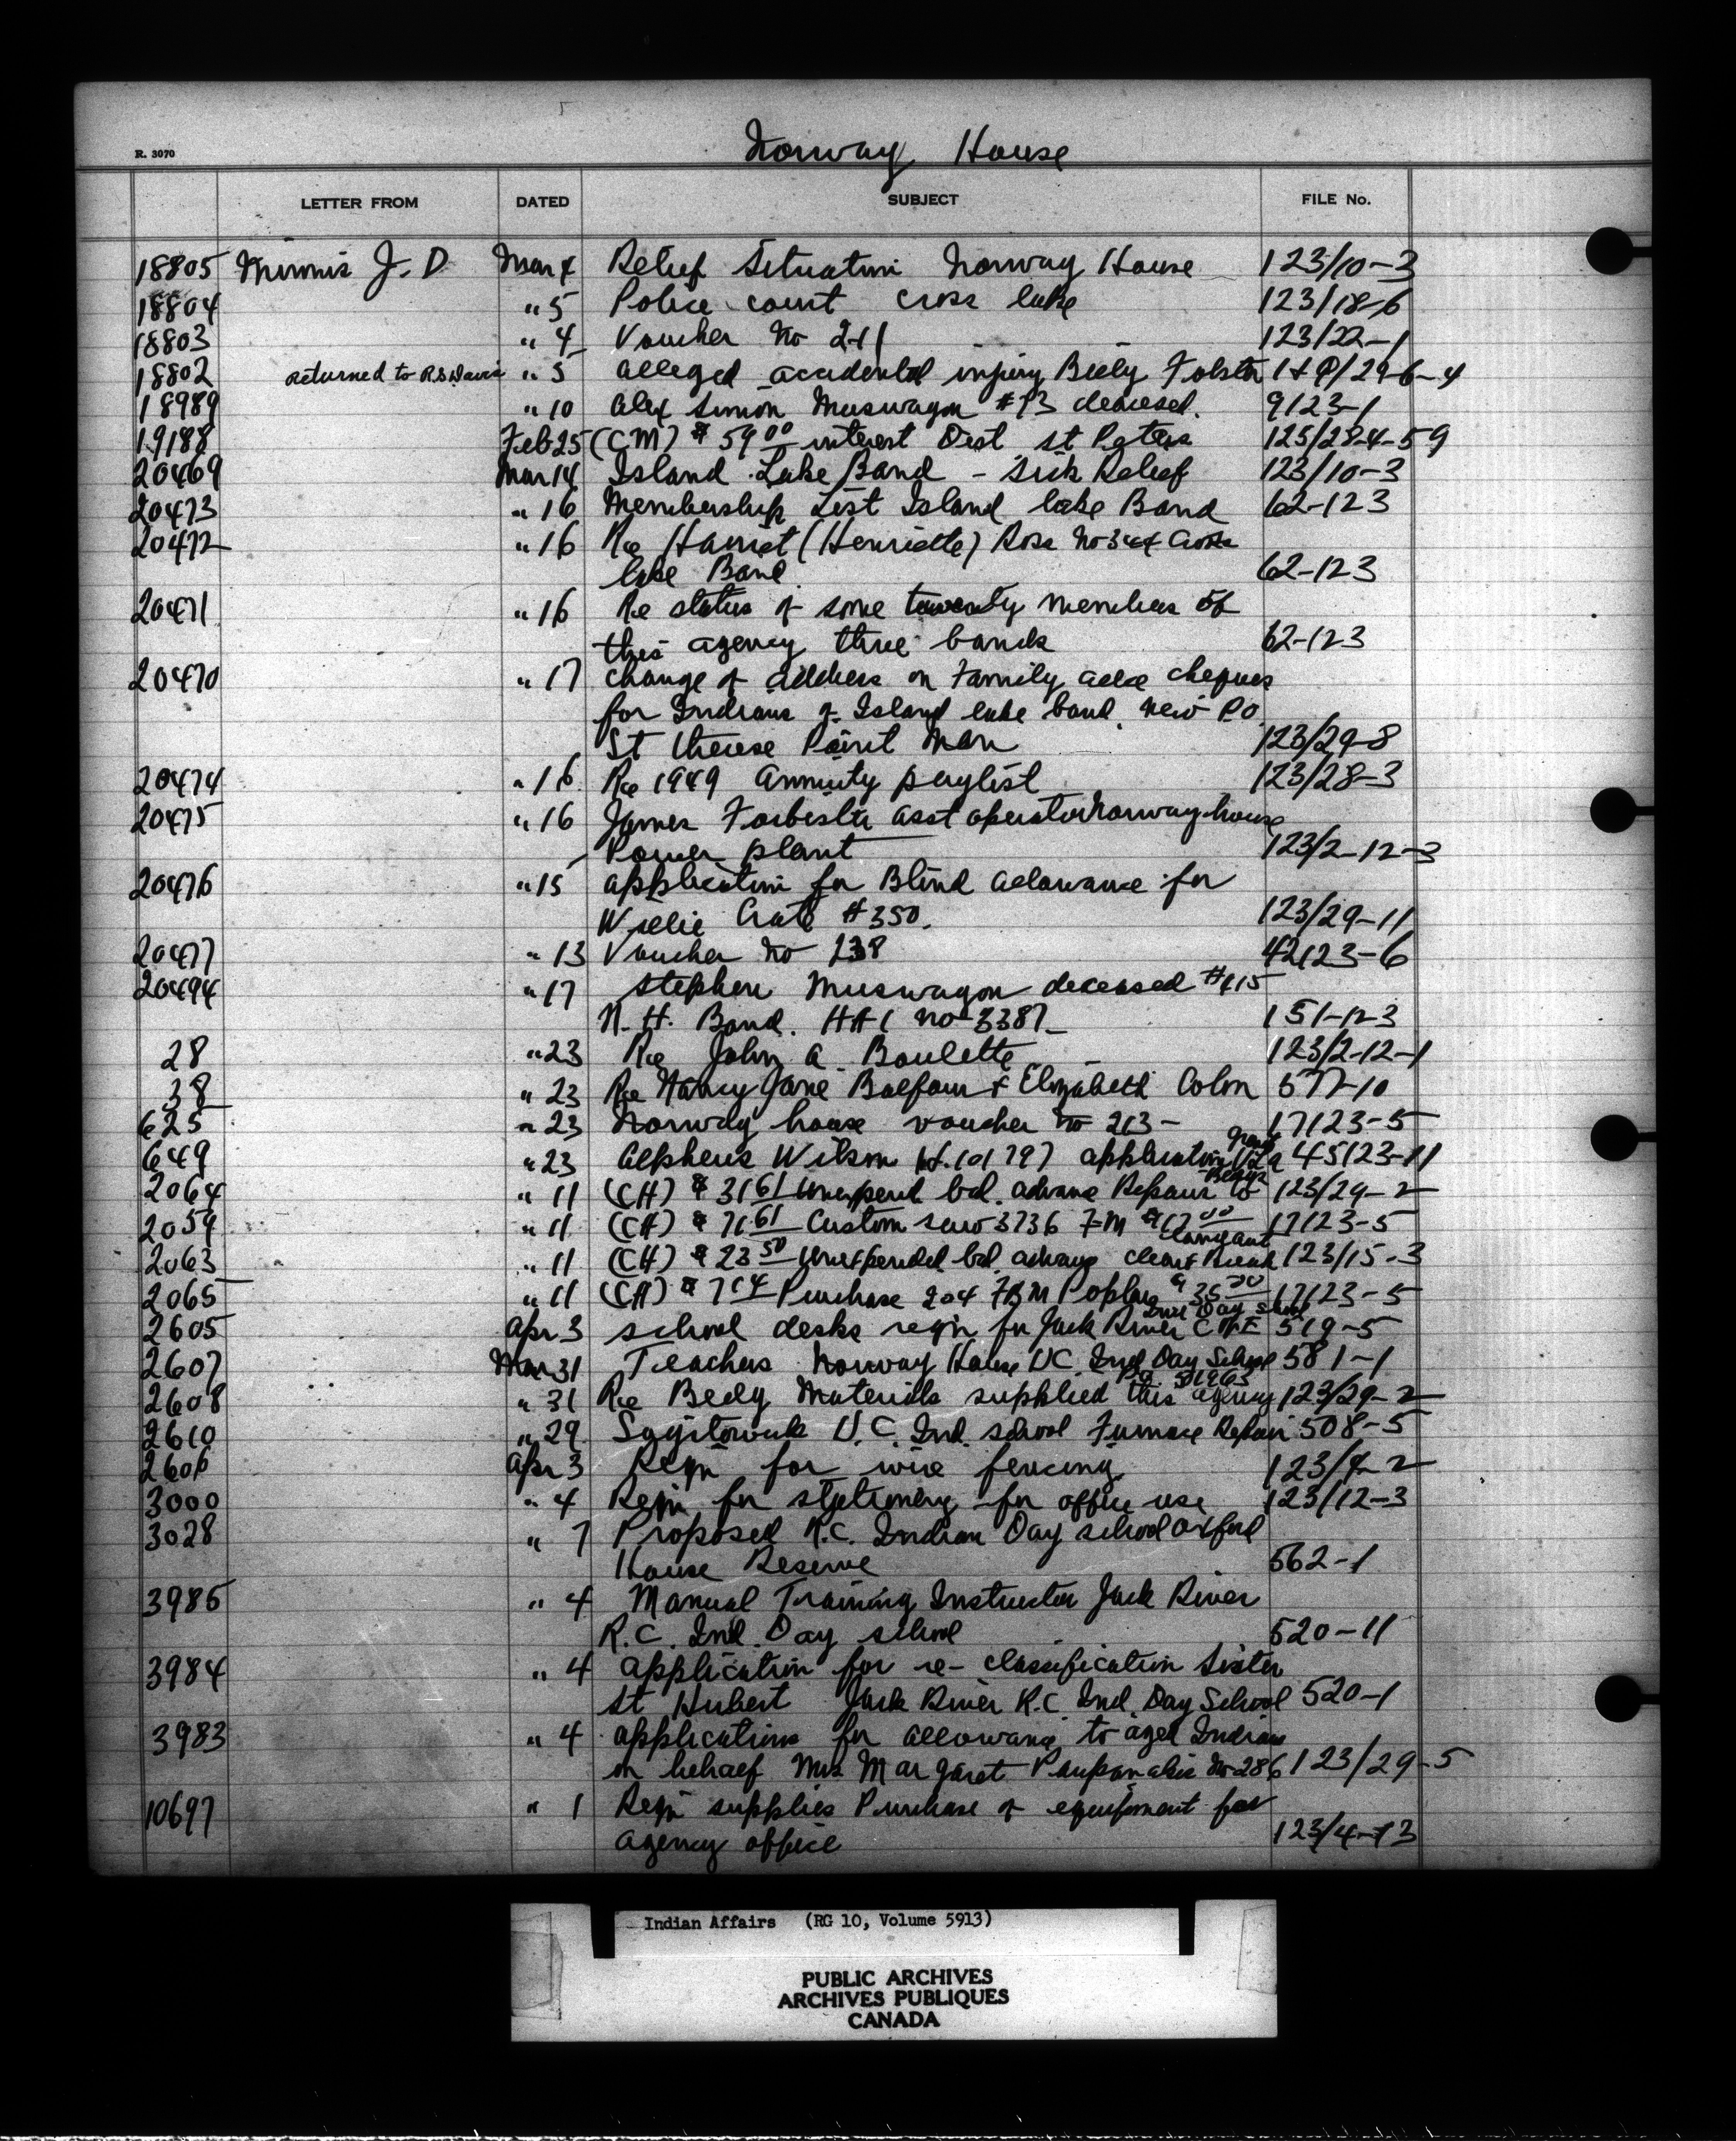 Norway House
R. 3070
LETTER FROM DATED SUBJECT FILE No.
18805 Minnis J. D Mar 4 Relief Situation Norway House 123/10-3
18804 " 5 Police court cross lake 123/18-6
18803 " 4 Voucher No 211 123/22-1
18802 returned to R.S. Davis " 5 alleged accidental injury Billy Folster 1+P/29-6-4
18989 " 10 Alex Simon Muswagon #73 deceased. 9123-1
19188 Feb 25 (CM) $ 59 00 interest Dist St Peters 125/28-4-59
20469 Mar 14 Island Lake Band - Sick Relief 123/10-3
20473 " 16 Membership List Island lake Band 62-123
20472 " 16 Re Harriet (Henriette) Ross No 344 Cross
lake Band 62-123
20471 " 16 Re status of some twenty members of
this agency three bands 62-123
20470 " 17 change of address on Family allce cheques
for Indians of Island lake band. new P.O.
St Therese Point Man 123/29-8
20474 " 16 Re 1949 Annuity paylist 123/28-3
20475 " 16 James Forbister asst operator Norway house
Power plant 123/2-12-3
20476 " 15 application for Blind allowance for
Willie Crate #350. 123/29-11
20477 " 13 Voucher No 238 42123-6
20494 " 17 Stephen Muswagon deceased #115
N. H. Band. No 3387 151-123
28 " 23 Re John A Boulette 123/2-12-1
38 " 23 Re Nancy Jane Balfour & Elizabeth Colon 577-10
625 " 23 Norway house voucher No 213 - 17123-5
649 " 23 Alpheus Wilson application grant 45123-11
2064 " 11 (CH) $ 31 61 unexpend bal. advance Repair 123/29-2
2059 " 11 (CH) $ 71 61 Custom saw 3736 FM $17 00 17123-5
2063 " 11 (CH) $ 23 50 unexpended bal. advance clear 123/15-3
2065 " 11 (CH) $ 7 14 Purchase 204 FBM Poplar $ 35 00 17123-5
2605 Apr 3 school desks reqn for Jack River C of E Ind Day School 519-5
2607 Mar 31 Teachers Norway House UC Ind Day School 581-1
2608 " 31 Re Bldg Materials supplied this agency 123/29-2
2610 " 29 Sagitawuk U.C. Ind. school Furnace Repair 508-5
2606 Apr 3 Reqn for wire fencing 123/4-2
3000 " 4 Reqn for stationery for office use 123/12-3
3028 " 7 Proposed R.C. Indian Day school Oxford
House Reserve 562-1
3985 " 4 Manual Training Instructor Jack River
R.C. Ind. Day school 520-11
3984 " 4 application for re-classification Sister
St Hubert Jack River R.C. Ind. Day School 520-1
3983 " 4 applications for allowance to aged Indians
on behalf Mrs Margaret Paupanakis No 286 123/29-5
10697 " 1 Reqn supplies Purchase of equipment for
agency office 123/4-13
Indian Affairs (RG 10, Volume 5913)
PUBLIC ARCHIVES
ARCHIVES PUBLIQUES
CANADA